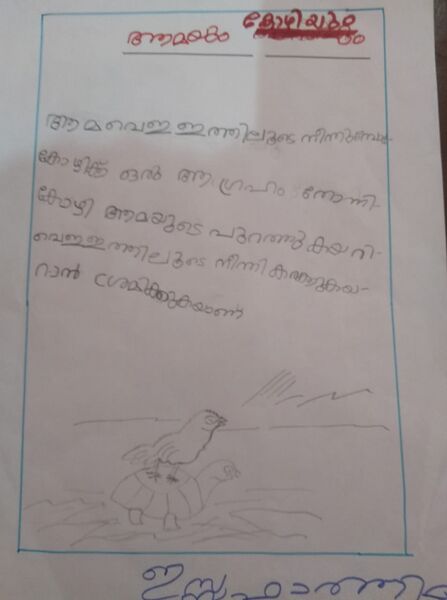 ആമയും കോഴിയും
ആമ വെള്ളത്തിലൂടെ നീന്തുമ്പോൾ
കോഴിക്ക് ഒരു ആഗ്രഹം തോന്നി
കോഴി ആമയുടെ പുറത്തു കയറി
വെള്ളത്തിലൂടെ നീന്തി കരയ്ക്കുകയ-
റാൻ ശ്രമിക്കുകയാണ്